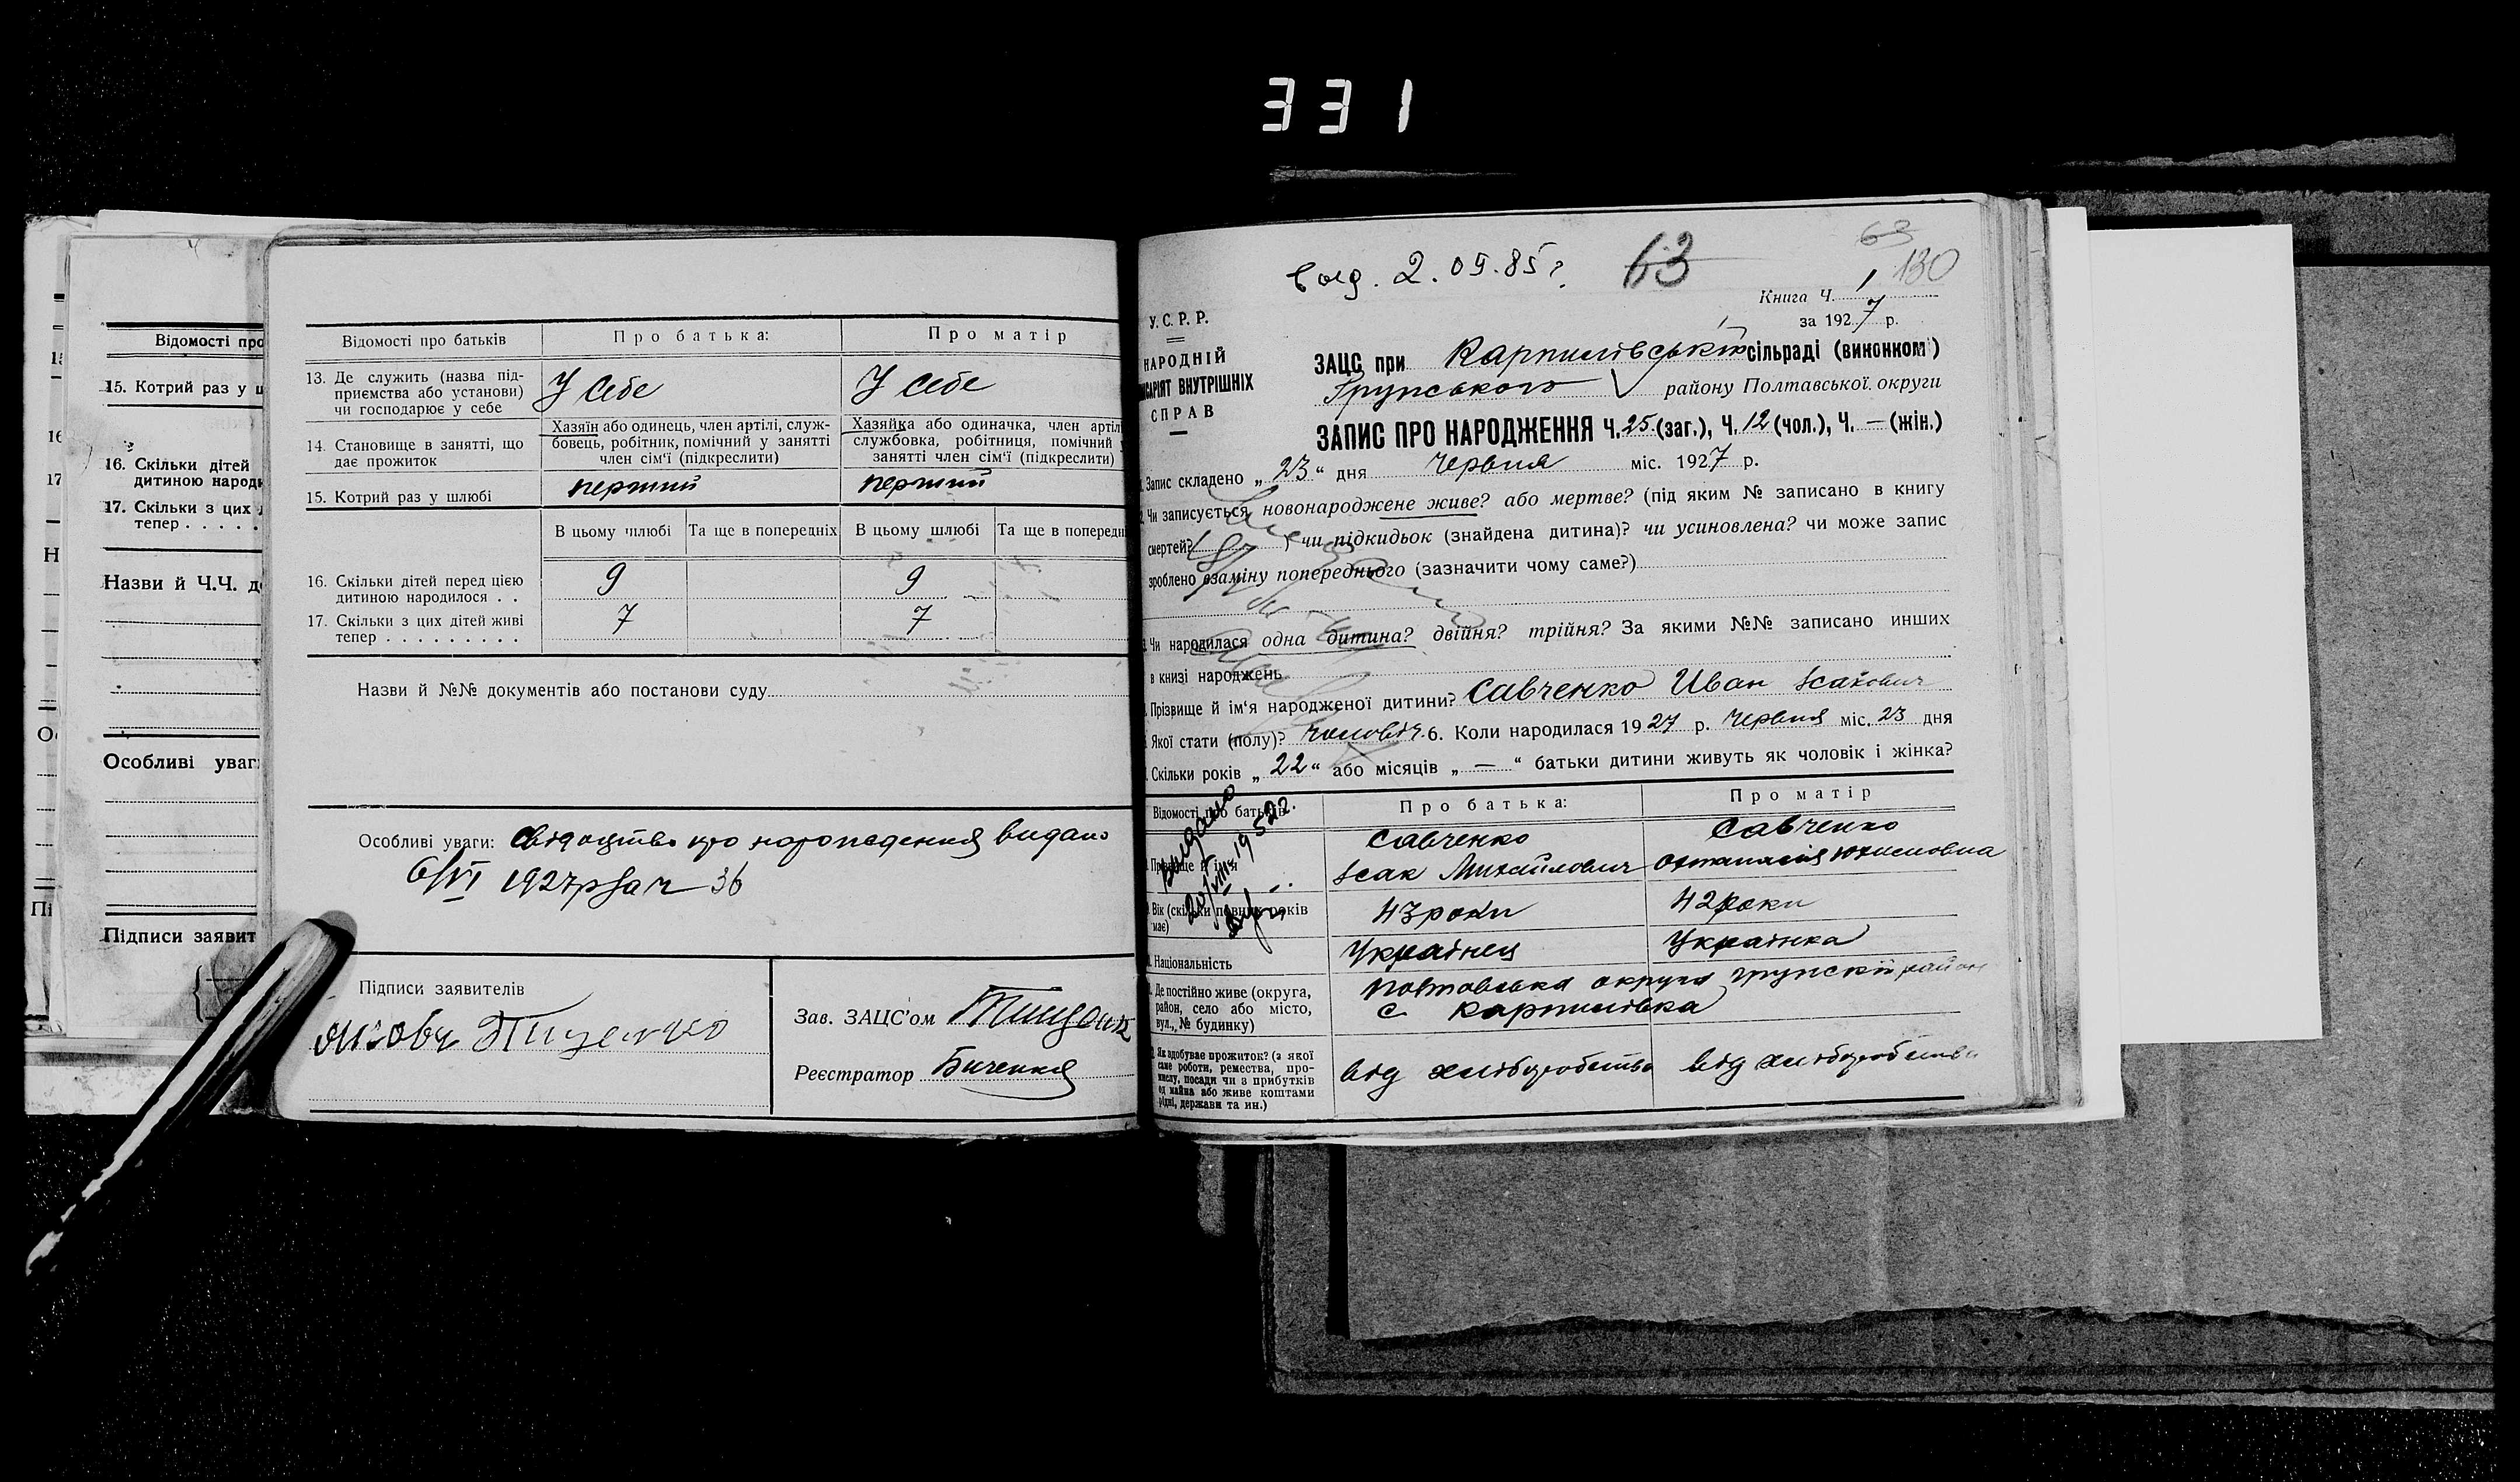 331
Відомості про
15. Котрий раз у ш
16. Скільки дітей
дитиною народи
17. Скільки з цих
тепер . . . . .
Назви й Ч.Ч. до
Особливі уваг
Підписи заявит
Відомості про батьків
Про батька:
Про матір
13. Де служить (назва під-
приємства або установи)
чи господарює у себе
У себе
У себе
14. Становище в занятті, що
дає прожиток
Хазяїн або одинець, член артілі, служ-
бовець, робітник, помічний у занятті
член сім'ї (підкреслити)
Хазяйка або одиначка, член артіл
службовка, робітниця, помічний у
занятті член сім'ї (підкреслити)
15. Котрий раз у шлюбі
перший
перший
В цьому шлюбі
Та ще в попередніх
В цьому шлюбі
Та ще в попередн
16. Скільки дітей перед цією
дитиною народилося . .
9
9
17. Скільки з цих дітей живі
тепер . . . . . . . . .
7
7
Назви й №№ документів або постанови суду
Особливі уваги: свідоцтво про народження видано
6/VI 1927р за ч 36
Підписи заявителів
Тищенко
Зав. ЗАЦС'ом
Реєстратор Биченко
вид. 2.09.85г.
63
63
130
Книга Ч. 1
за 1927 р.
У.С.Р.Р.
НАРОДНІЙ
САРІЯТ ВНУТРІШНІХ
СПРАВ
ЗАЦС при Карпилівській сільраді (виконком)
Грунського району Полтавської округи
ЗАПИС ПРО НАРОДЖЕННЯ Ч. 25 (заг.), Ч. 12 (чол.), Ч. — (жін.)
Запис складено „ 23 " дня червня міс. 1927 р.
Чи записується новонароджене живе? або мертве? (під яким № записано в книгу
смертей? ) чи підкидьок (знайдена дитина)? чи усиновлена? чи може запис
зроблено взаміну попереднього (зазначити чому саме?)
Чи народилася одна дитина? двійня? трійня? За якими №№ записано инших
в книзі народжень
Прізвище й ім'я народженої дитини? Савченко Иван Ісакович
Якої стати (полу)? чоловіч. 6. Коли народилася 1927 р. червня міс. 23 дня
Скільки років „ 22 " або місяців „ — " батьки дитини живуть як чоловік і жінка?
Відомості про батьків
Про батька:
Про матір
Выдано
20/VIII 1952г.
Прізвище й ім'я
Савченко
Ісак Михайлович
Савченко
Вік (скільки повних років
має)
43 роки
42 роки
Національність
Українец
Українка
Де постійно живе (округа,
район, село або місто,
вул., № будинку)
Полтавська округа Грунскій район
с. Карпилівка
Як здобуває прожиток? (з якої
саме роботи, ремества, про-
мислу, посади чи з прибутків
од майна або живе коштами
рідні, держави та ин.)
від хліборобства
від хліборобства